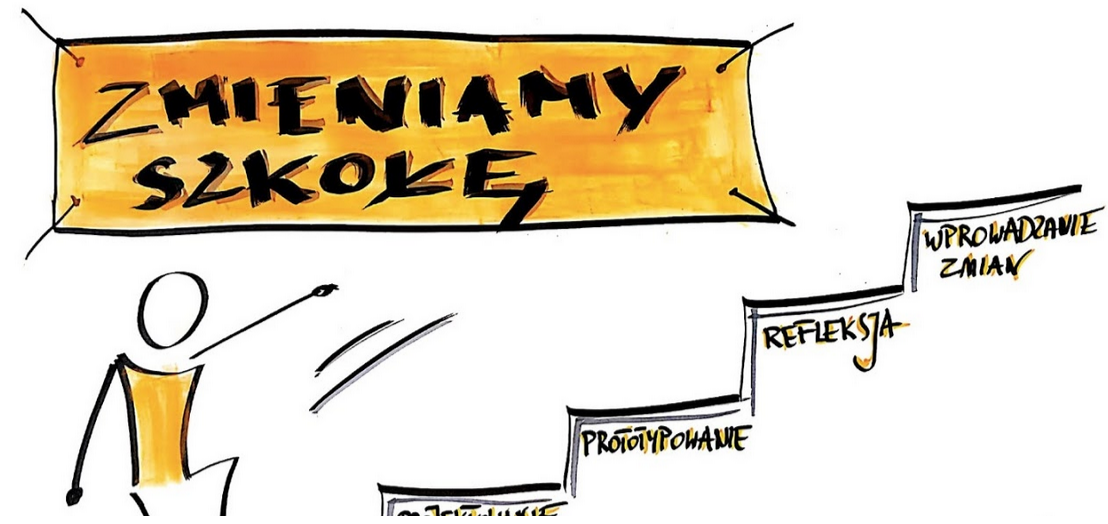 ZMIENIAMY
SZKOŁĘ
WPROWADZANIE
ZMIAN
REFLEKSJA
PROTOTYPOWANIE